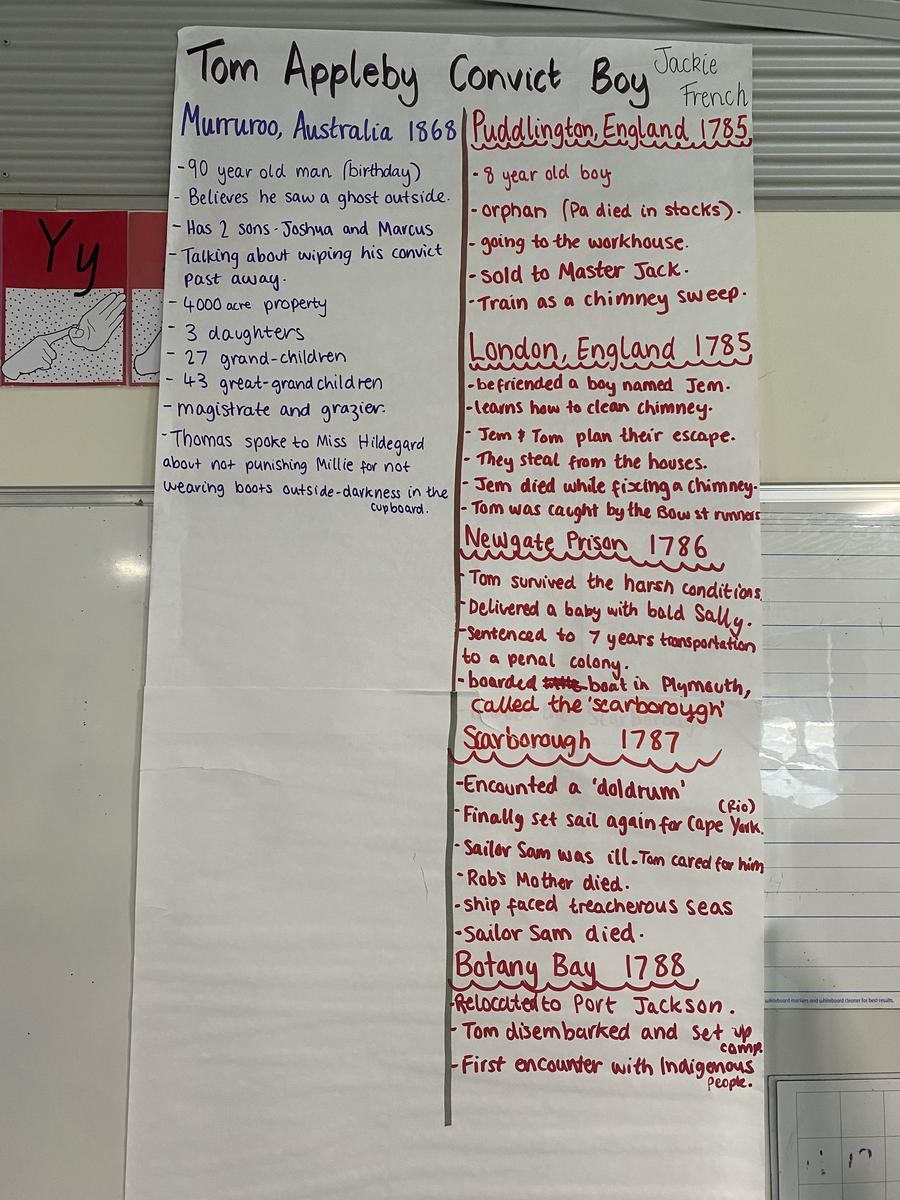 Tom Appleby Convict Boy
Jackie
French
Murruroo, Australia 1868
-90 year old man (birthday)
- Believes he saw a ghost outside.
- Has 2 sons-Joshua and Marcus
- Talking about wiping his convict
past away.
- 4000 acre property
- 3 daughters
- 27 grand-children
- 43 great-grandchildren
- magistrate and grazier.
-Thomas spoke to Miss Hildegard
about not punishing Millie for not
wearing boots outside-darkness in the
cupboard.
Puddlington, England 1785
-8 year old boy
-orphan (Pa died in stocks).
- going to the workhouse.
-sold to Master Jack.
-Train as a chimney sweep.
London, England 1785
-befriended a boy named Jem.
-learns how to clean chimney.
- Jem & Tom plan their escape.
- They steal from the houses.
- Jem died while fixing a chimney.
- Tom was caught by the Bow st runners
Newgate Prison 1786
- Tom survived the harsh conditions.
-Delivered a baby with bald Sally.
-Sentenced to 7 years transportation
to a penal colony.
-boarded boat in Plymouth,
called the 'scarborough'
Scarborough 1787
-Encounted a 'doldrum'
(Rio)
-Finally set sail again for Cape York.
-Sailor Sam was ill-Tom cared for him
-Rob's Mother died.
-ship faced treacherous seas
-Sailor Sam died.
Botany Bay 1788
-Relocated to Port Jackson.
- Tom disembarked and set up
camp.
-First encounter with Indigenous
People.
Yy
whiteboard markers and whiteboard cleaner for best results.